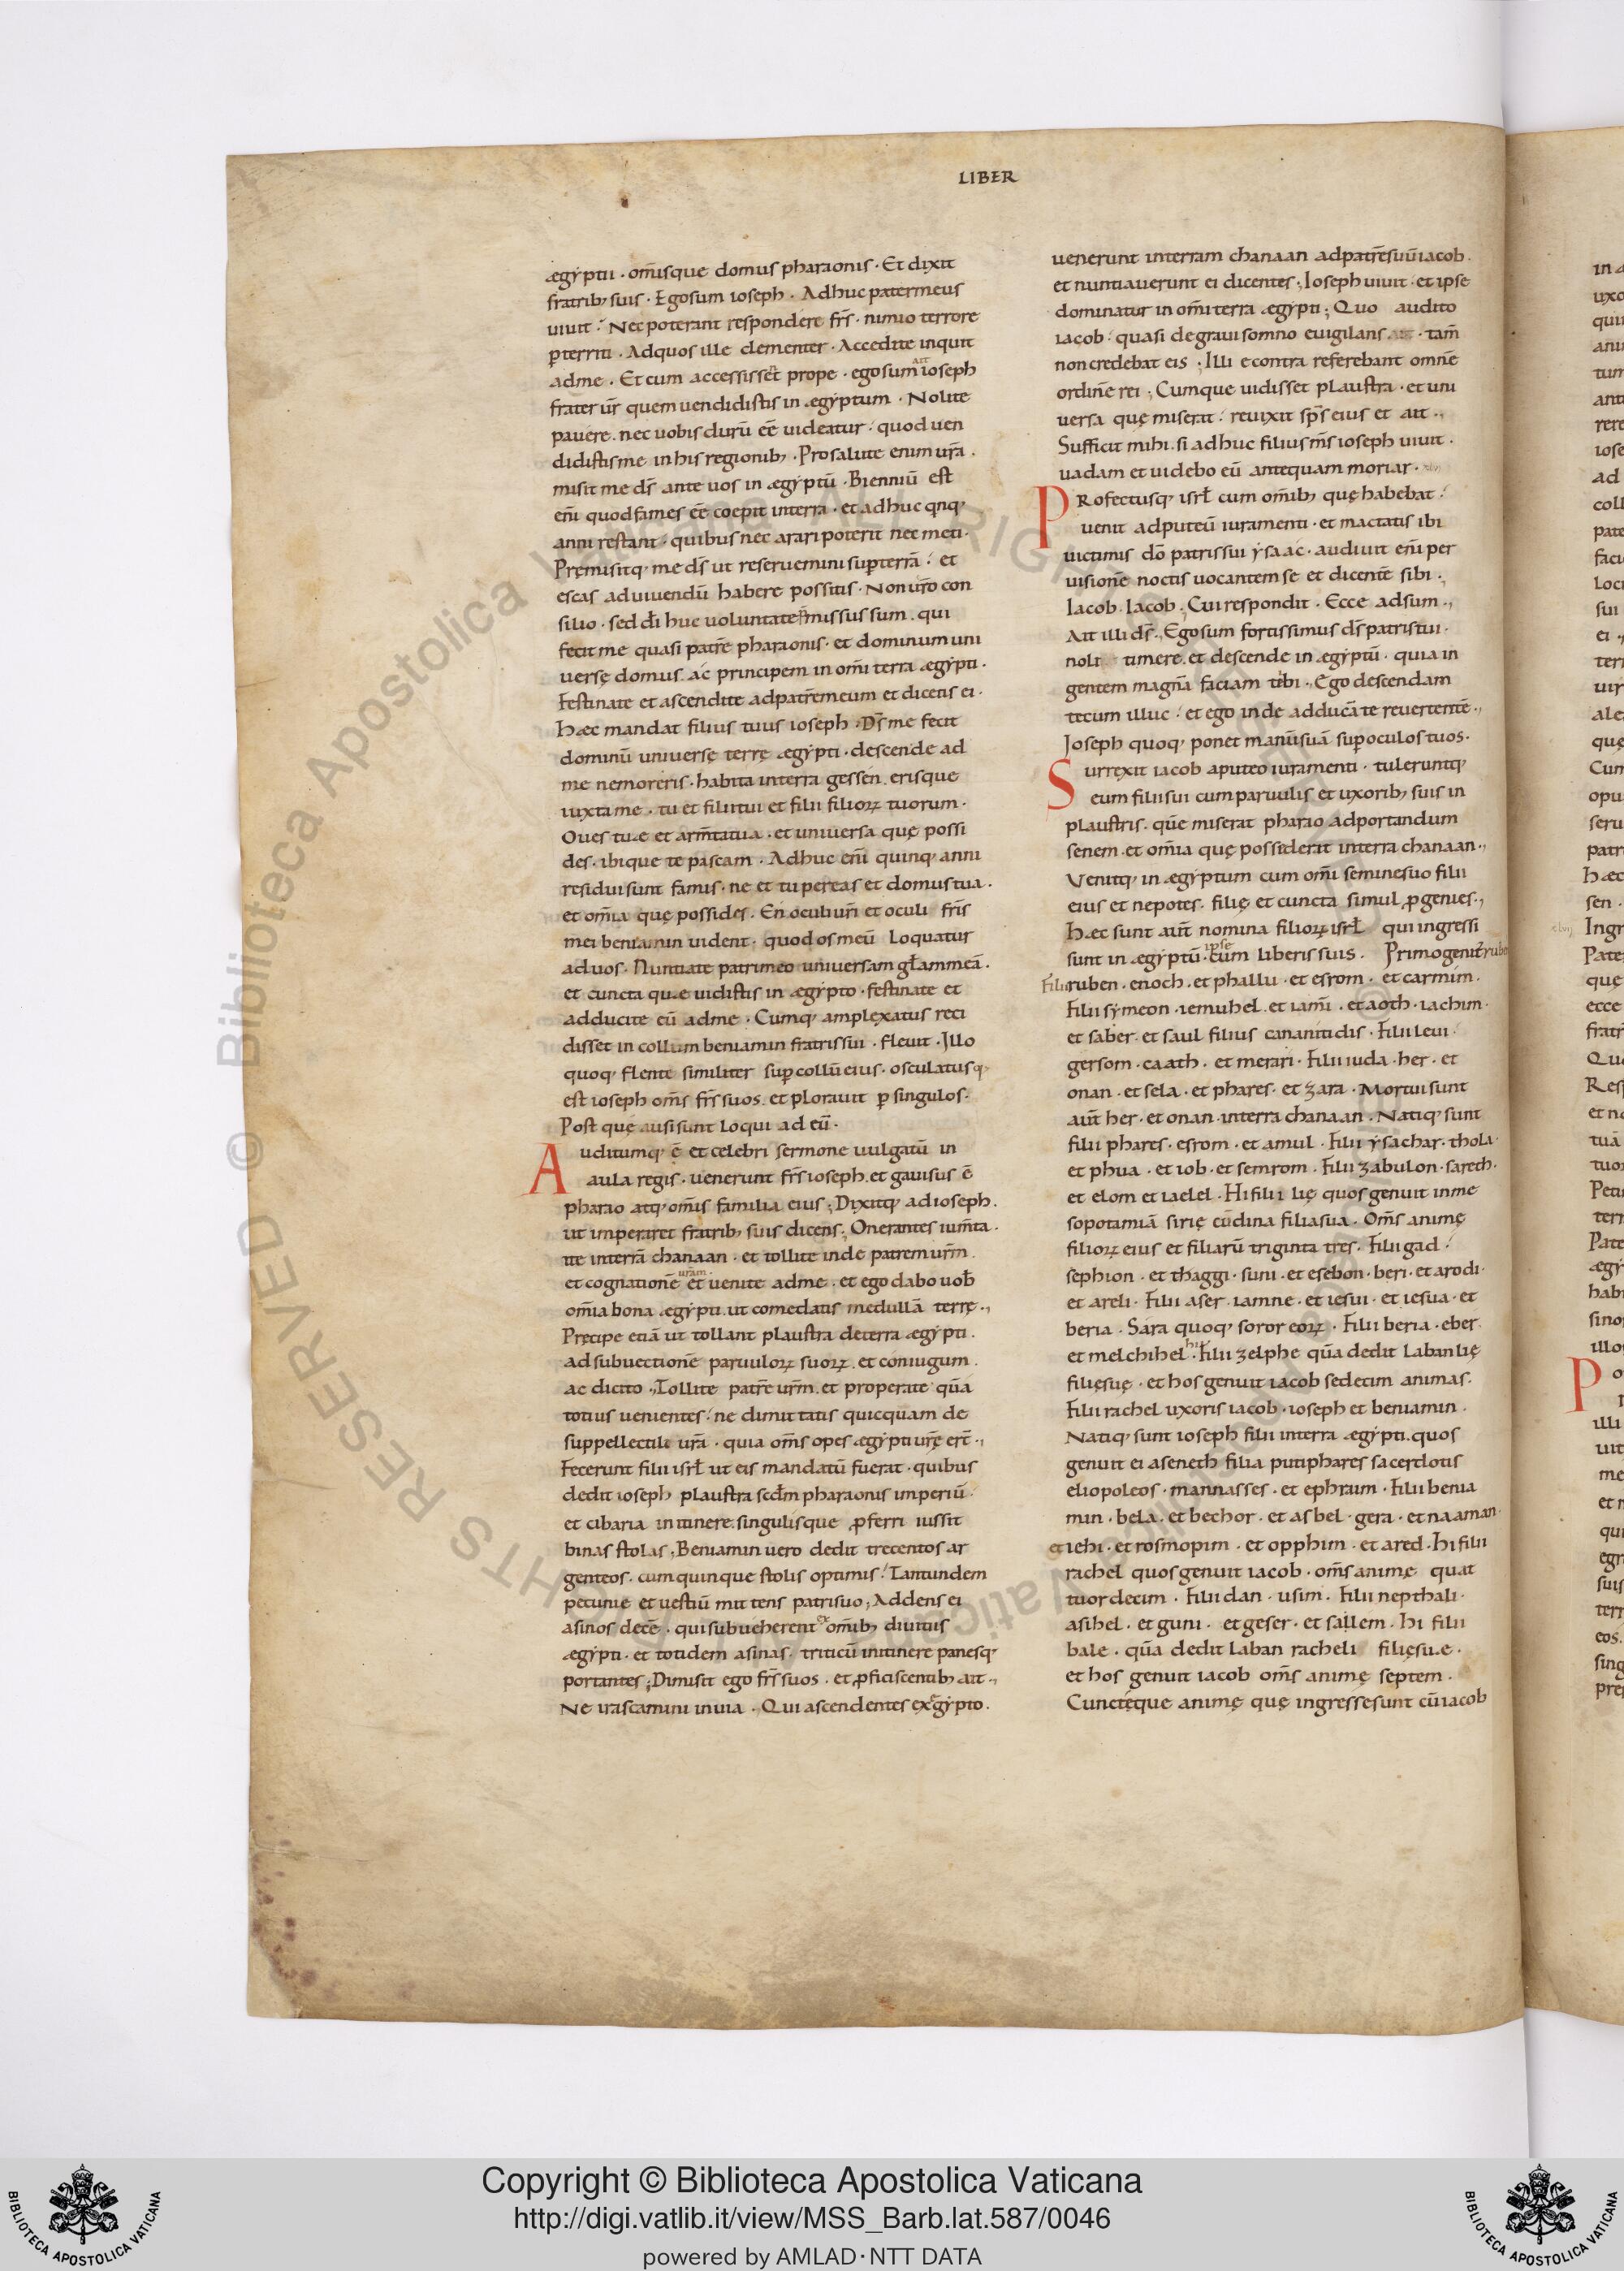 LIBER
ęgyptii · om̄isque domus pharaonis · Et dixit
fratrib; suis · Ego sum ioseph · Adhuc pater meus
uiuit? Nec poterant respondere fr̄s · nimio terrore
ꝑterriti · Ad quos ille clementer · Accedite inquit
ad me · Et cum accessissēt prope · ego sum ait ioseph
frater ur̄ quem uendidistis in ægyptum · Nolite
pauere · nec uobis durū eē uideatur · quod uen
didistis me in his regionib; · Pro salute enim ur̄a ·
misit me ds̄ ante uos in ægyptū · Bienniū est
eni̅ quod fames eē coepit in terra · et adhuc qnq;
anni restant · quibus nec arari poterit nec meti ·
Pręmisitq; me ds̄ ut reseruemini suꝑ terrā · et
escas ad uiuendū habere possitis · Non ur̄o con
silio · sed di̅ huc uoluntate missus sum · qui
fecit me quasi patrē pharaonis · et dominum uni
uersę domus · ac principem in om̄i terra ægypti ·
Festinate et ascendite ad patrē meum et dicens ei ·
Hæc mandat filius tuus ioseph · Ds̄ me fecit
dominū uniuersę terrę ægypti · descende ad
me ne moreris · habita in terra gessen · erisque
iuxta me · tu et filii tui et filii filioꝝ tuorum ·
Oues tuæ et arm̄ta tua · et uniuersa quę possi
des · ibique te pascam · Adhuc eni̅ quinq; anni
residui sunt famis · ne et tu pereas et domus tua ·
et om̄ia quę possides · En oculi ur̄i et oculi fr̄is
mei beniamin uident · quod os meū loquatur
ad uos · Nuntiate patri meo uniuersam gl̄am meā ·
et cuncta quæ uidistis in ægypto · festinate et
adducite eū ad me · Cumq; amplexatus reci
disset in collum beniamin fratris sui · fleuit · Illo
quoq; flente similiter suꝑ collū eius · osculatusq;
est ioseph om̄s fr̄s suos · et plorauit ꝑ singulos ·
Post quę ausi sunt loqui ad eū ·
Auditumq; ē et celebri sermone uulgatū in
aula regis · uenerunt fr̄s ioseph · et gauisus ē
pharao atq; om̄is familia eius ; Dixitq; ad ioseph ·
ut imperaret fratrib; suis dicens ; Onerantes ium̄ta ·
ite in terrā chanaan · et tollite inde patrem ur̄m
et cognationē ur̄am et uenite ad me · et ego dabo uob̄
om̄ia bona ægypti · ut comedatis medullā terrę ·,
Pręcipe etiā ut tollant plaustra de terra ægypti ·
ad subuectionē paruuloꝝ suoꝝ · et coniugum ·
ac dicito · Tollite patrē ur̄m · et properate quā
totius uenientes · ne dimittatis quicquam de
suppellectili ur̄a · quia om̄s opes ægypti ur̄ę er̄t ·,
Fecerunt filii isrl̄ ut eis mandatū fuerat · quibus
dedit ioseph plaustra scd̄m pharaonis imperiū ·
et cibaria in itinere · singulisque ꝓferri iussit
binas stolas · Beniamin uero dedit trecentos ar
genteos · cum quinque stolis optimis · Tantundem
pecunię et uestiū mittens patri suo ; Addens ei
asinos decē · qui subueherent ex om̄ib; diuitiis
ægypti · et totidem asinas · triticū in itinere panesq;
portantes ; Dimisit ego fr̄s suos · et ꝓficiscentib; ait ·,
Ne irascamini in uia · Qui ascendentes ex ęgypto ·
uenerunt in terram chanaan ad patrē suū iacob ·
et nuntiauerunt ei dicentes ; Ioseph uiuit · et ipse
dominatur in om̄i terra ægypti ; Quo audito
iacob · quasi de graui somno euigilans · tam̄
non credebat eis · Illi e contra referebant omnē
ordinē rei ; Cumque uidisset plaustra · et uni
uersa quę miserat · reuixit sp̄s eius et ait ·,
Sufficit mihi · si adhuc filius m̄s ioseph uiuit ·
uadam et uidebo eū antequam moriar ·
PRofectusq; isrl̄ cum om̄ib; quę habebat ·
uenit ad puteū iuramenti · et mactatis ibi
uictimis dō patris sui ysaac · audiuit eni̅ per
uisionē noctis uocantem se et dicentē sibi ·,
Iacob · Iacob · Cui respondit · Ecce adsum ·,
Ait illi ds̄ · Ego sum fortissimus ds̄ patris tui ·
noli timere · et descende in ægyptū · quia in
gentem magnā faciam tibi · Ego descendam
tecum illuc · et ego inde adducā te reuertentē ·,
Ioseph quoq; ponet manū suā suꝑ oculos tuos ·
Surrexit iacob a puteo iuramenti · tuleruntq;
eum filii sui cum paruulis et uxorib; suis in
plaustris · quę miserat pharao ad portandum
senem · et om̄ia quę possederit in terra chanaan ·,
Venitq; in ægyptum cum om̄i semine suo filii
eius et nepotes · filię et cuncta simul ꝓgenies ·,
Hæc sunt aut̄ nomina filioꝝ isrl̄ qui ingressi
sunt in ægyptū · ipse cum liberis suis · Primogenit; ruben
Filii ruben · enoch · et phallu · et esrom · et carmim ·
Filii symeon · iemuhel · et iami̅ · et aoth · iachim ·
et saber · et saul filius cananitidis · Filii leui ·
gersom · caath · et merari · Filii iuda · her · et
onan · et sela · et phares · et zara · Mortui sunt
aut̄ her · et onan · in terra chanaan · Natiq; sunt
filii phares · esrom · et amul · Filii ysachar · thola ·
et phua · et iob · et semrom · Filii zabulon · sarech ·
et elom et iaelel · Hi filii lię quos genuit in me
sopotamiā sirię cū dina filia sua · Om̄s animę
filioꝝ eius et filiarū triginta tres · Filii gad ·
sephion · et thaggi · suni · et esebon · beri · et arodi ·
et areli · Filii aser · iamne · et iesui · et iesua · et
beria · Sara quoq; soror eoꝝ · Filii beria · eber ·
et melchihel · hi filii zelphe quā dedit laban lię
filię suę · et hos genuit iacob sedecim animas ·
Filii rachel uxoris iacob · ioseph et beniamin ·
Natiq; sunt ioseph filii in terra ægypti · quos
genuit ei aseneth filia putiphares sacerdotis
eliopoleos · mannasses · et ephraim · Filii benia
min · bela · et bechor · et asbel · gera · et naaman ·
et iehi · et rosmopim · et opphim · et ared · Hi filii
rachel quos genuit iacob · om̄s animę quat
tuordecim · Filii dan · usim · Filii nepthali ·
asihel · et guni · et geser · et sallem · Hi filii
bale · quā dedit laban racheli filię suæ ·
et hos genuit iacob om̄s animę septem ·
Cunctęque animę quę ingresse sunt cū iacob
Copyright © Biblioteca Apostolica Vaticana
http://digi.vatlib.it/view/MSS_Barb.lat.587/0046
powered by AMLAD·NTT DATA
BIBLIOTECA APOSTOLICA VATICANA
BIBLIOTECA APOSTOLICA VATICANA